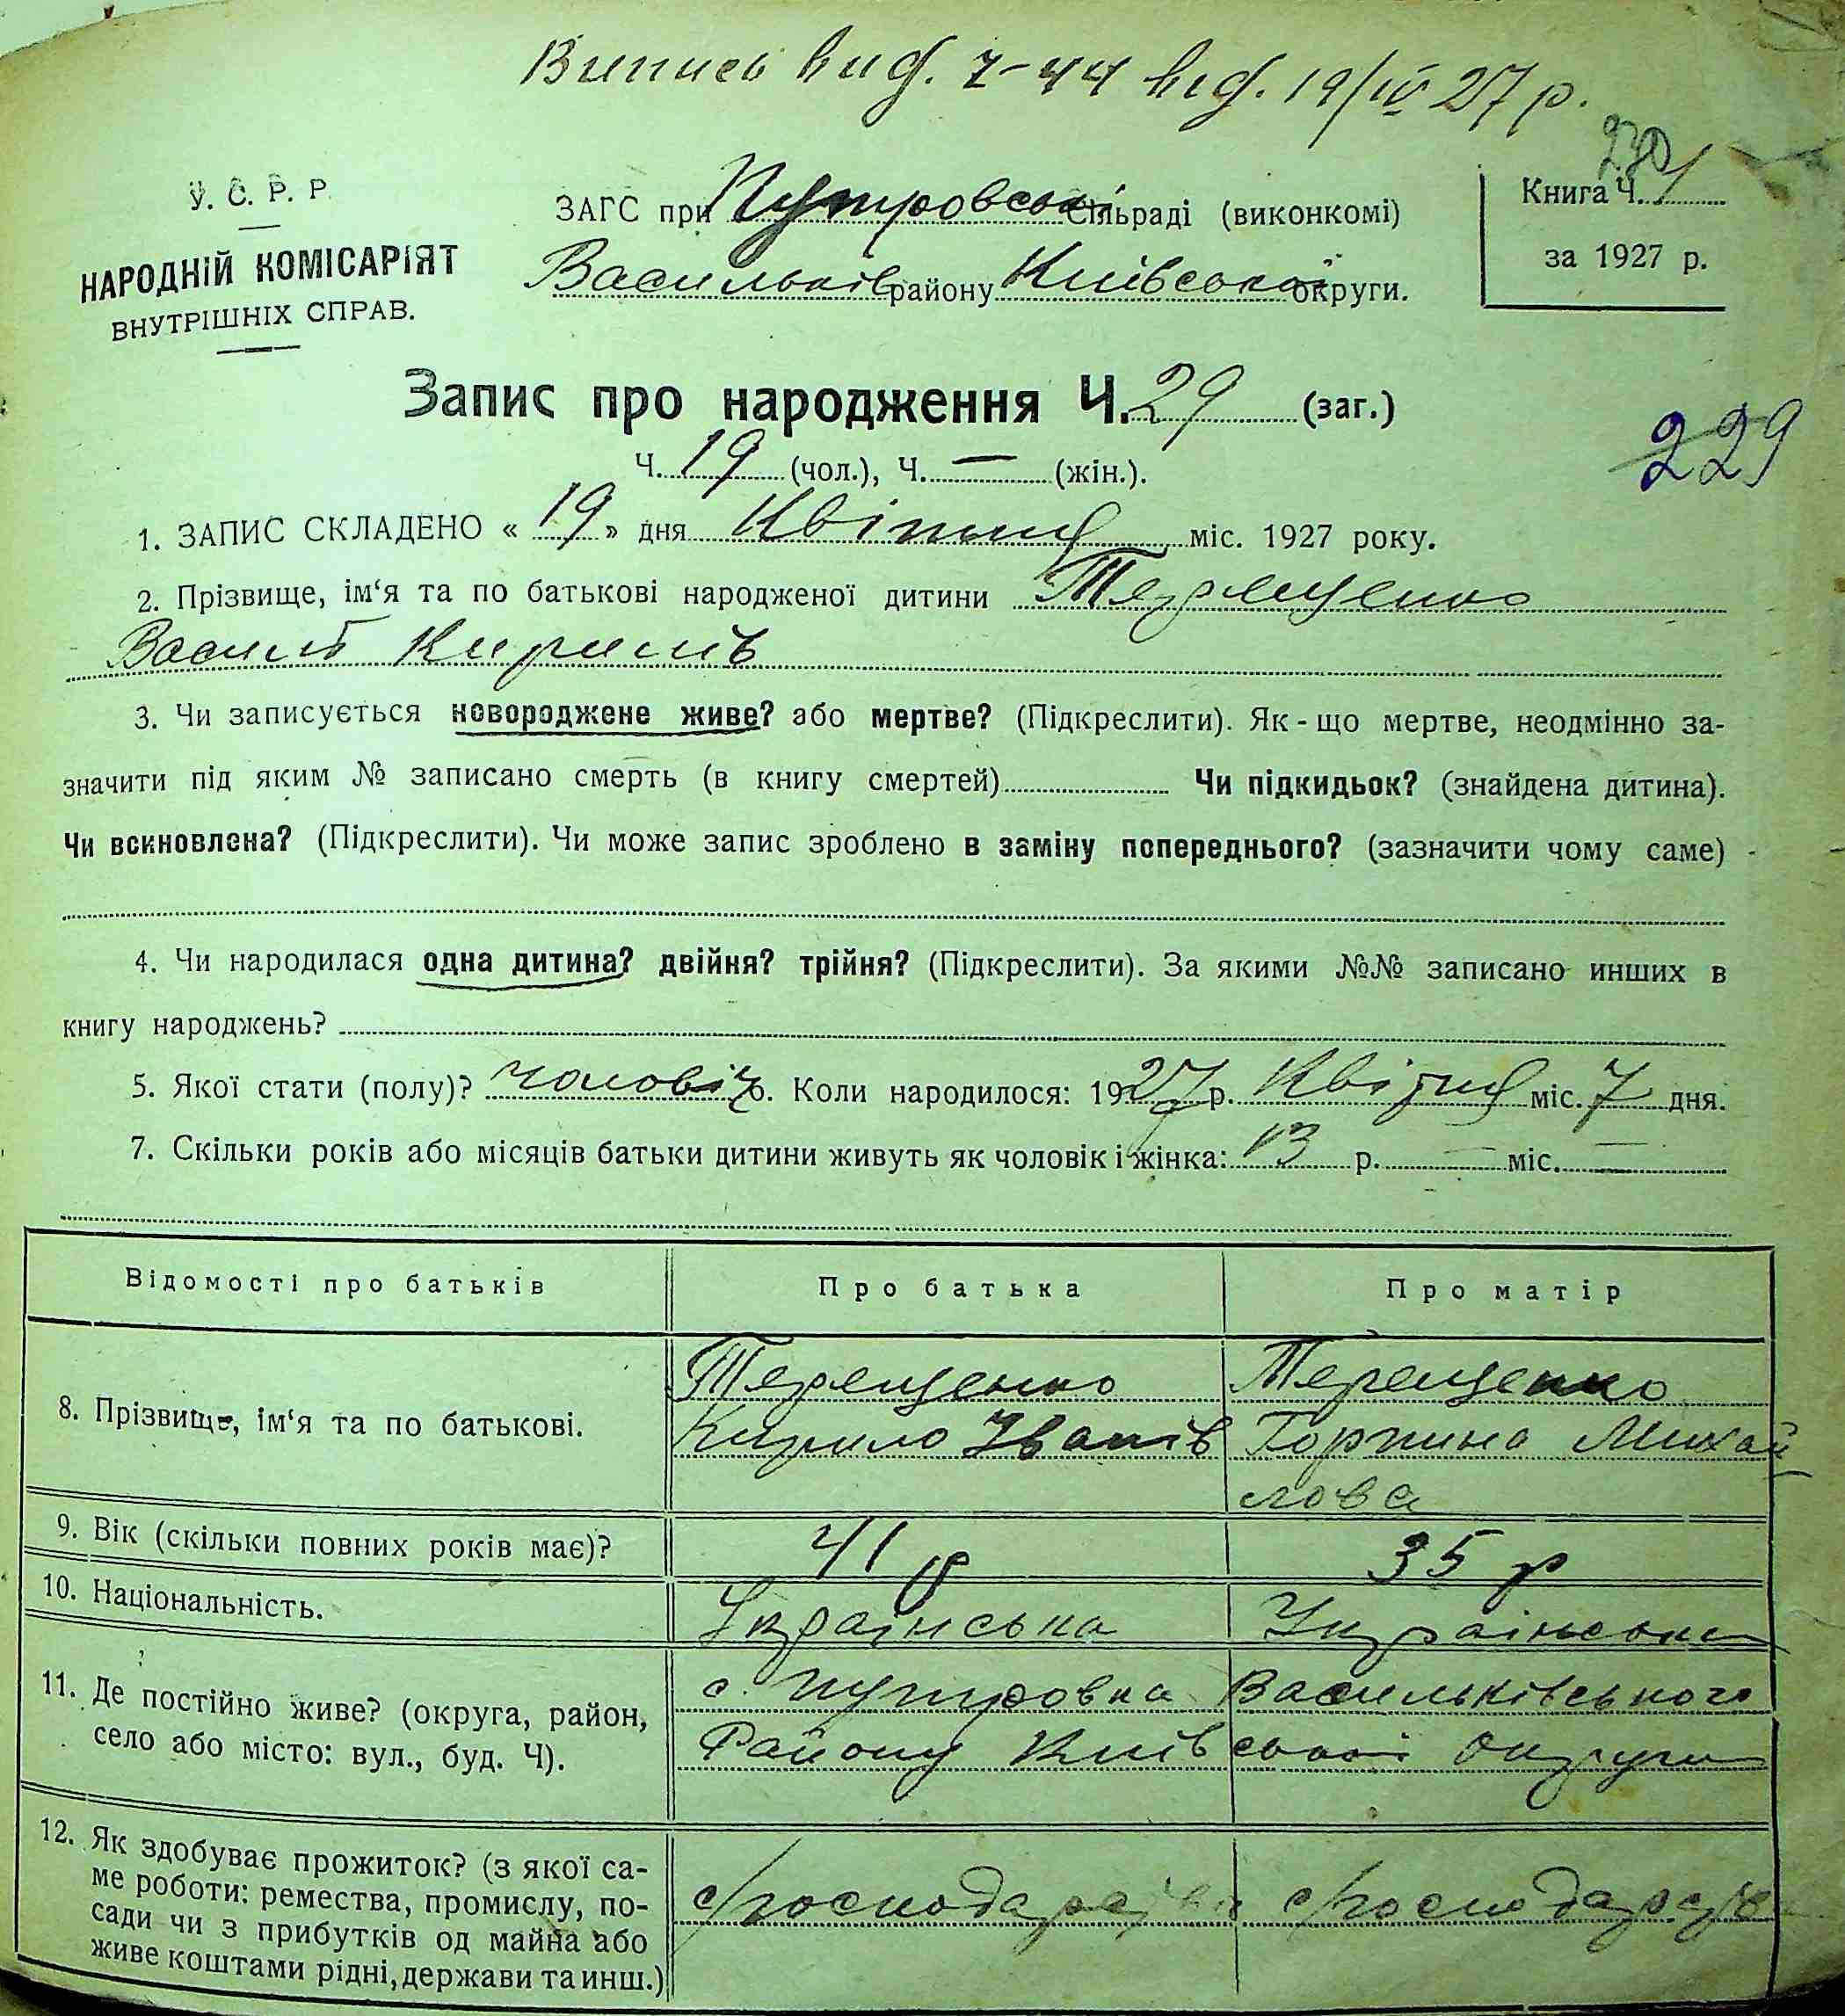 Випись вид. Ч-44 від. 19/IV 27 р.
230
У. С. Р. Р.
НАРОДНІЙ КОМІСАРІЯТ
ВНУТРІШНІХ СПРАВ.
ЗАГС при Путровські сільраді (виконкомі)
Васильків району Київської округи.
Книга Ч. 1
за 1927 р.
Запис про народження Ч. 29 (заг.)
229
Ч. 19 (чол.), Ч. — (жін.).
1. ЗАПИС СКЛАДЕНО « 19 » дня Квітня міс. 1927 року.
2. Прізвище, ім‘я та по батькові народженої дитини Терещенко
Василь Кирилів
3. Чи записується новороджене живе? або мертве? (Підкреслити). Як - що мертве, неодмінно за-
значити під яким № записано смерть (в книгу смертей) Чи підкидьок? (знайдена дитина).
Чи всиновлена? (Підкреслити). Чи може запис зроблено в заміну попереднього? (зазначити чому саме)
4. Чи народилася одна дитина? двійня? трійня? (Підкреслити). За якими №№ записано инших в
книгу народжень?
5. Якої стати (полу)? чоловіч. Коли народилося: 1927 р. Квітня міс. 7 дня.
7. Скільки років або місяців батьки дитини живуть як чоловік і жінка: 13 р. — міс. —
Відомості про батьків Про батька Про матір
8. Прізвище, ім‘я та по батькові.
Терещенко Терещенко
Кирило Іванів Горпина Михай
лова
9. Вік (скільки повних років має)? 41 р 35 р
10. Національність. Українська Українська
11. Де постійно живе? (округа, район,
село або місто: вул., буд. Ч).
с. Путровка Васильківського
Району Київської Округи
12. Як здобуває прожиток? (з якої са-
ме роботи: ремества, промислу, по-
сади чи з прибутків од майна або
живе коштами рідні, держави та инш.)